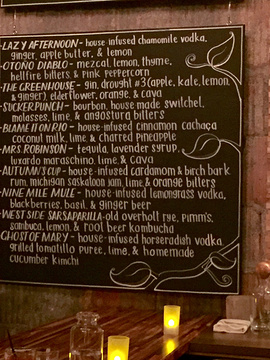 -LAZY AFTERNOON- house-infused chamomile vodka,
ginger, apple butter, & lemon
-OTONO DIABLO- mezcal, lemon, thyme,
hellfire bitters, & pink peppercorn
-THE GREENHOUSE- gin, drought #3 (apple, kale, lemon,
& ginger), elderflower, orange, & cava
-SUCKERPUNCH- bourbon, house made switchel,
molasses, lime, & angostura bitters
-BLAME IT ON RIO- house-infused cinnamon cachaça
coconut milk, lime, & charred pineapple
-MRS. ROBINSON- tequila, lavender syrup,
luxardo maraschino, lime, & cava
-AUTUMN'S CUP- house-infused cardamom & birch bark
rum, michigan saskatoon jam, lime, & orange bitters
-NINE MILE MULE- house-infused lemongrass vodka,
blackberries, basil, & ginger beer
-WEST SIDE SARSAPARILLA- old overholt rye, pimm's,
sambuca, lemon, & root beer kombucha
-GHOST OF MARY- house-infused horseradish vodka,
grilled tomatillo puree, lime, & homemade
cucumber kimchi